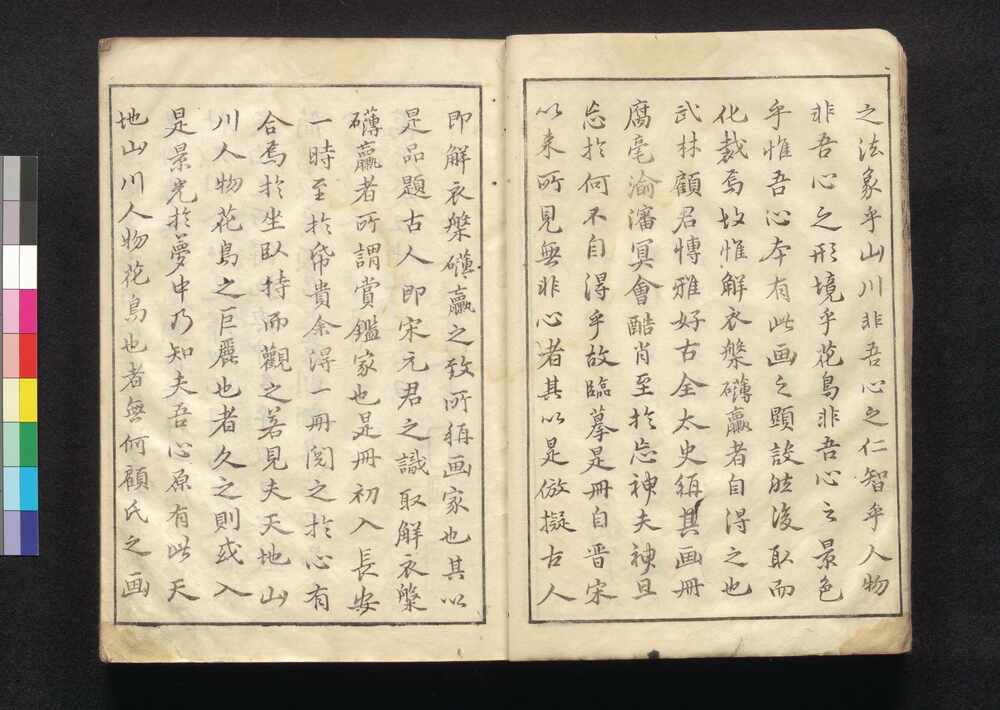 之法象乎山川非吾心之仁智乎人物
非吾心之形境乎花鳥非吾心之景色
乎惟吾心本有此画之顕設然後取而
化裁焉故惟解衣槃礴臝者自得之也
武林顧君慱雅好古全太史稱其画冊
腐毫渝瀋冥會酷肖至於忘神夫神且
忘於何不自得乎故臨摹是冊自晋宋
以来所見無非心者其以是倣擬古人
即解衣槃礴臝之致所稱画家也其以
是品題古人即宋元君之識取解衣槃
礴臝者所謂賞鑑家也是冊初入長安
一時至於帋貴余得一冊閲之於心有
合焉於坐臥持而觀之若見夫天地山
川人物花鳥之巨麗也者久之則或入
是景光於夢中乃知夫吾心原有此天
地山川人物花鳥也者無何顧氏之画